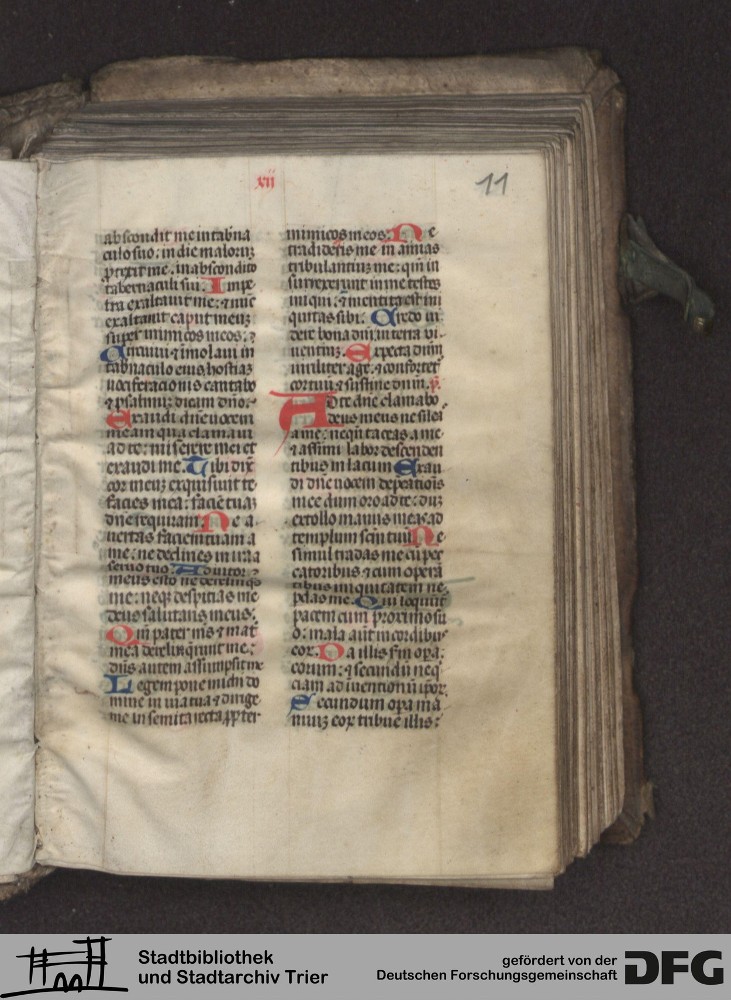 xij
11
abscondit me in tab̄na
culo suo: in die maloruꝫ
ꝓtexit me. in abscondito
tabernaculi sui. In pe
tra exaltauit me: ⁊ nūc
exaltauit caput meuꝫ
super inimicos meos: ⁊
Circuiui ⁊ imolaui in
tabnaculo eius hostiaꝫ
uociferacionis cantabo
⁊ psalmuꝫ dicam dn̄o.
Exaudi dn̄e uocem
meam qua clamaui
ad te: miserere mei et
exaudi me. Tibi dix̄
cor meuꝫ exquisiuit te
facies mea: faciē tuaꝫ
dn̄e requiram Ne a
uertas faciem tuam a
me: ne declines in ira a
seruo tuo. Adiutor
meus esto ne derelinq̄s
me: neqꝫ despicias me
deus salutaris meus.
Qm̄ pater ms̄ ⁊ mat̄
mea dereliq̄runt me:
dn̄s autem assumpsit me
Legem pone michi do
mine in uia tua ⁊ dirige
me in semita recta ꝓpter
inimicos meos. Ne
tradideris me in animas
tribulantiuꝫ me: qm̄ in
surrexerunt in me testes
iniqui: ⁊ mentita est ini
quitas sibi. Credo ui
dere bona dn̄i in terra ui
uentiuꝫ. Expecta dn̄m
uiriliter age: ⁊ confortet
cor tuū ⁊ sustine dn̄m. p̄.
Ad te dn̄e clamabo
deus meus ne silea
a me: neqn̄ taceas a me
⁊ assimilabor descenden
tibus in lacum Exau
di dn̄e uocem dep̄cationis
mee dum oro ad te: duꝫ
extollo manus meas ad
templum sc̄m tuū Ne
simul tradas me cū pec
catoribus ⁊ cum operā
tibus iniquitatem ne
pdas me. Qui loquūt̄
pacem cum proximo su
o: mala aūt in cordibus
eoꝝ. Da illis sm̄ opa
eorum: ⁊ secundū neq̄
ciam adinuentionū ip̄oꝝ.
Secundum opa ma
nuuꝫ eoꝝ tribue illis:
Stadtbibliothek
und Stadtarchiv Trier
gefördert von der
Deutschen Forschungsgemeinschaft
DFG